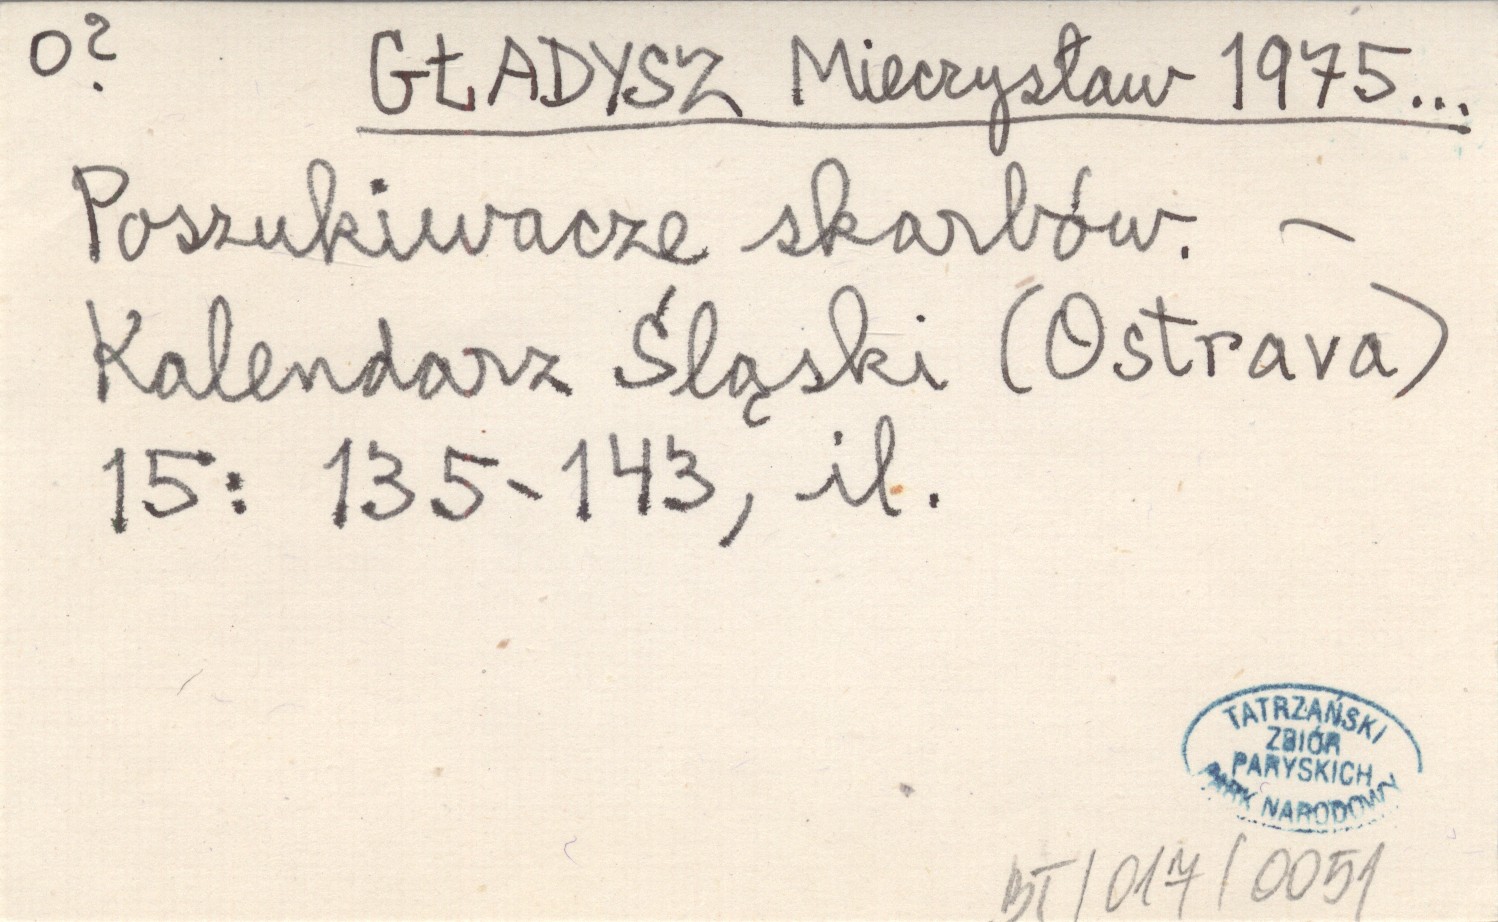 o?
GŁADYSZ Mieczysław 1975...
Poszukiwacze skarbów. –
Kalendarz Śląski (Ostrava)
15: 135-143, il.
TATRZAŃSKI
ZBIÓR
PARYSKICH
PARK NARODOWY
BT/017/0051